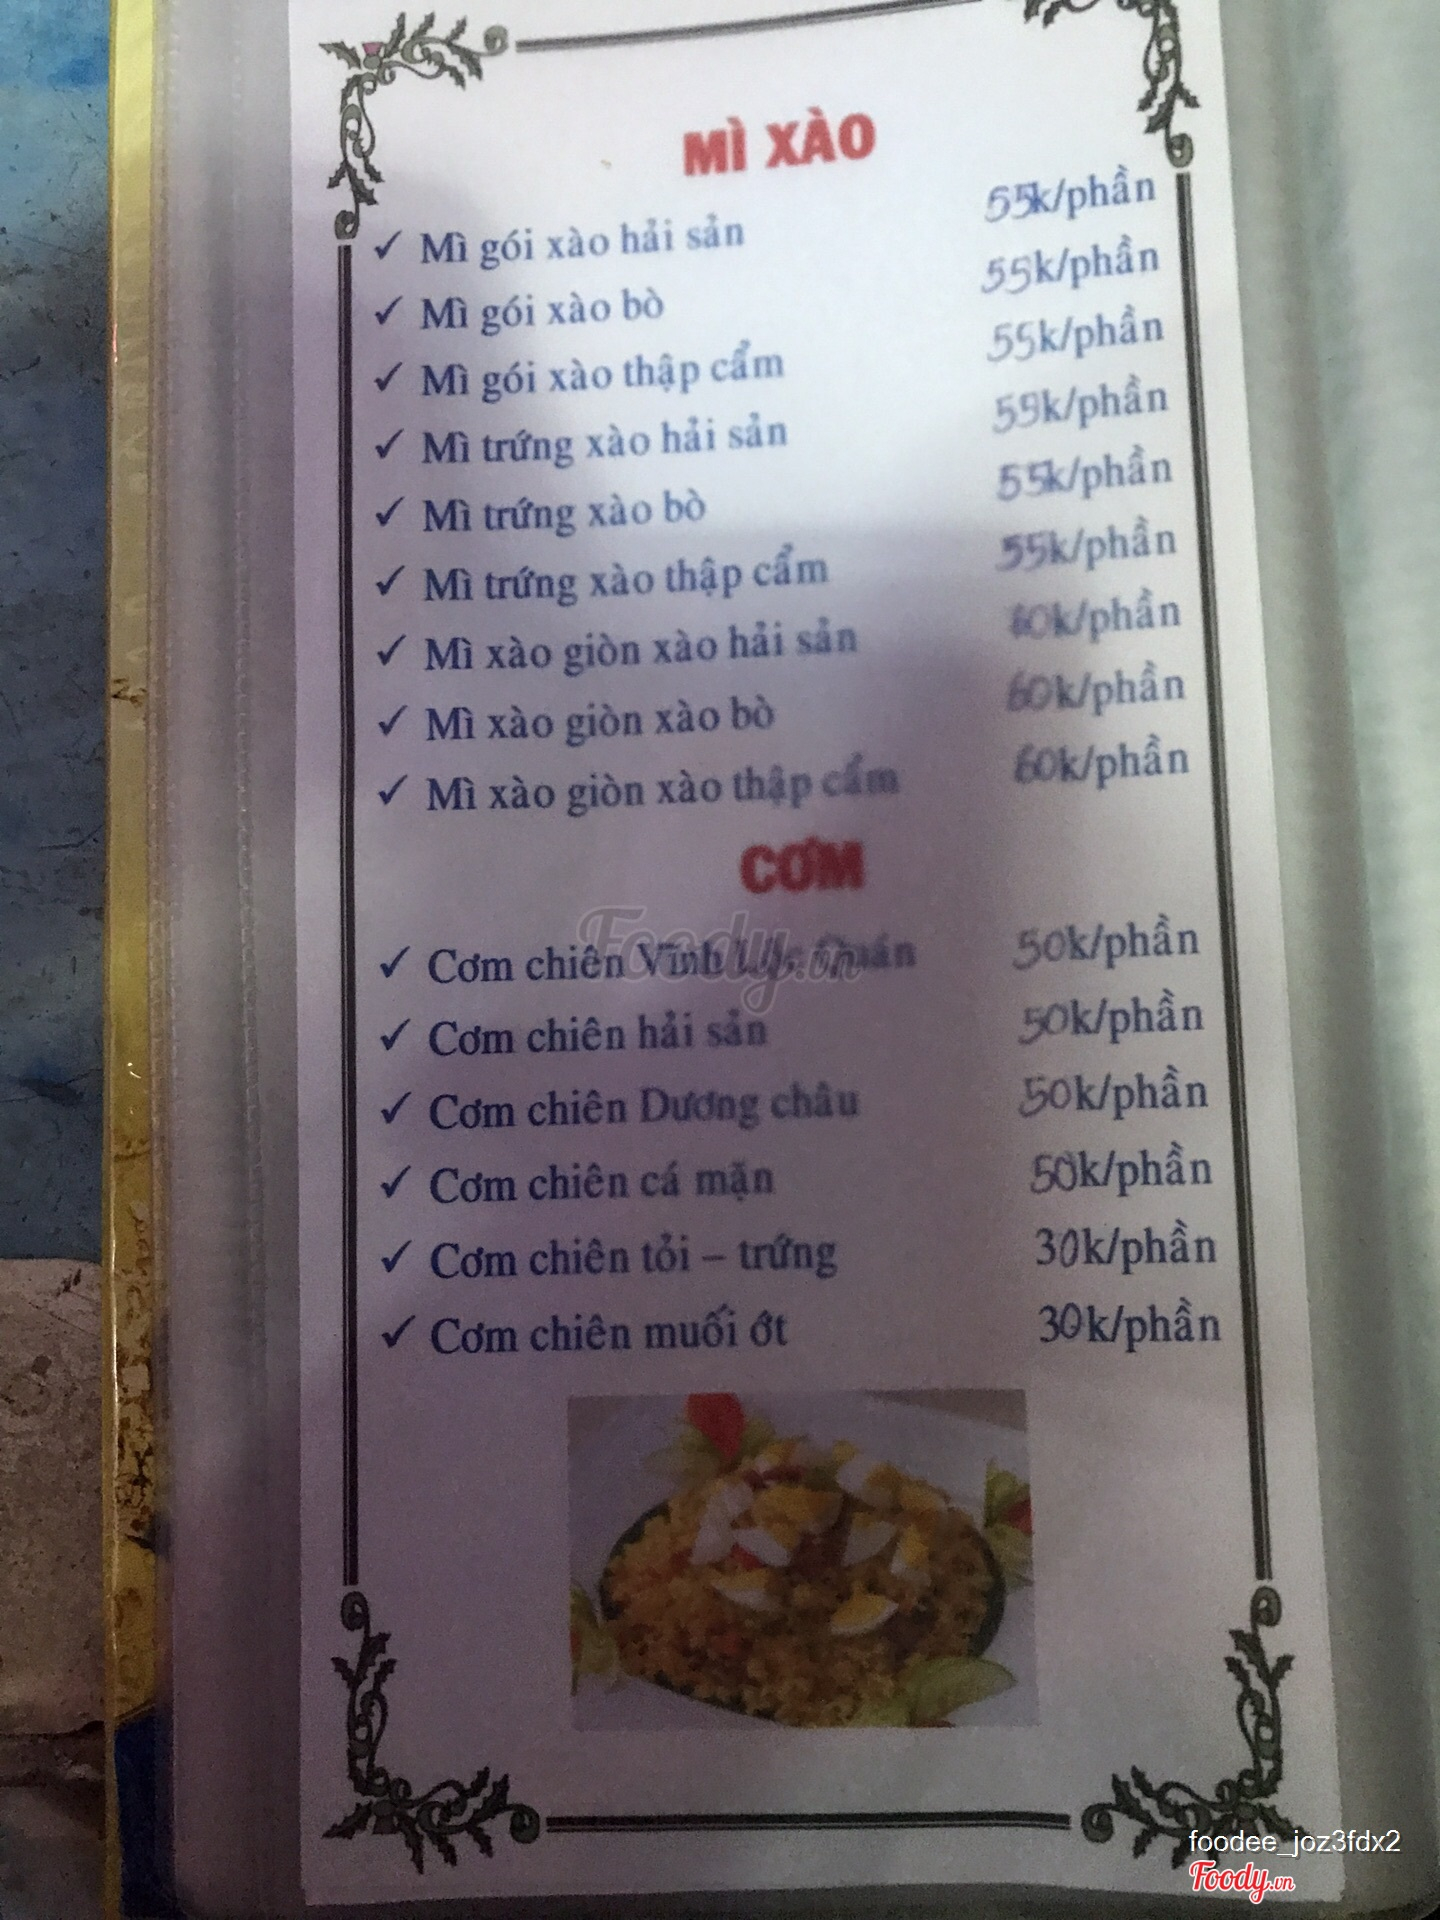 MÌ XÀO
✓ Mì gói xào hải sản 55k/phần
✓ Mì gói xào bò 55k/phần
✓ Mì gói xào thập cẩm 55k/phần
✓ Mì trứng xào hải sản 55k/phần
✓ Mì trứng xào bò 55k/phần
✓ Mì trứng xào thập cẩm 55k/phần
✓ Mì xào giòn xào hải sản 60k/phần
✓ Mì xào giòn xào bò 60k/phần
✓ Mì xào giòn xào thập cẩm 60k/phần
CƠM
✓ Cơm chiên Vĩnh Lộc Quán 50k/phần
✓ Cơm chiên hải sản 50k/phần
✓ Cơm chiên Dương châu 50k/phần
✓ Cơm chiên cá mặn 50k/phần
✓ Cơm chiên tỏi – trứng 30k/phần
✓ Cơm chiên muối ớt 30k/phần
Foody.vn
foodee_joz3fdx2
Foody.vn